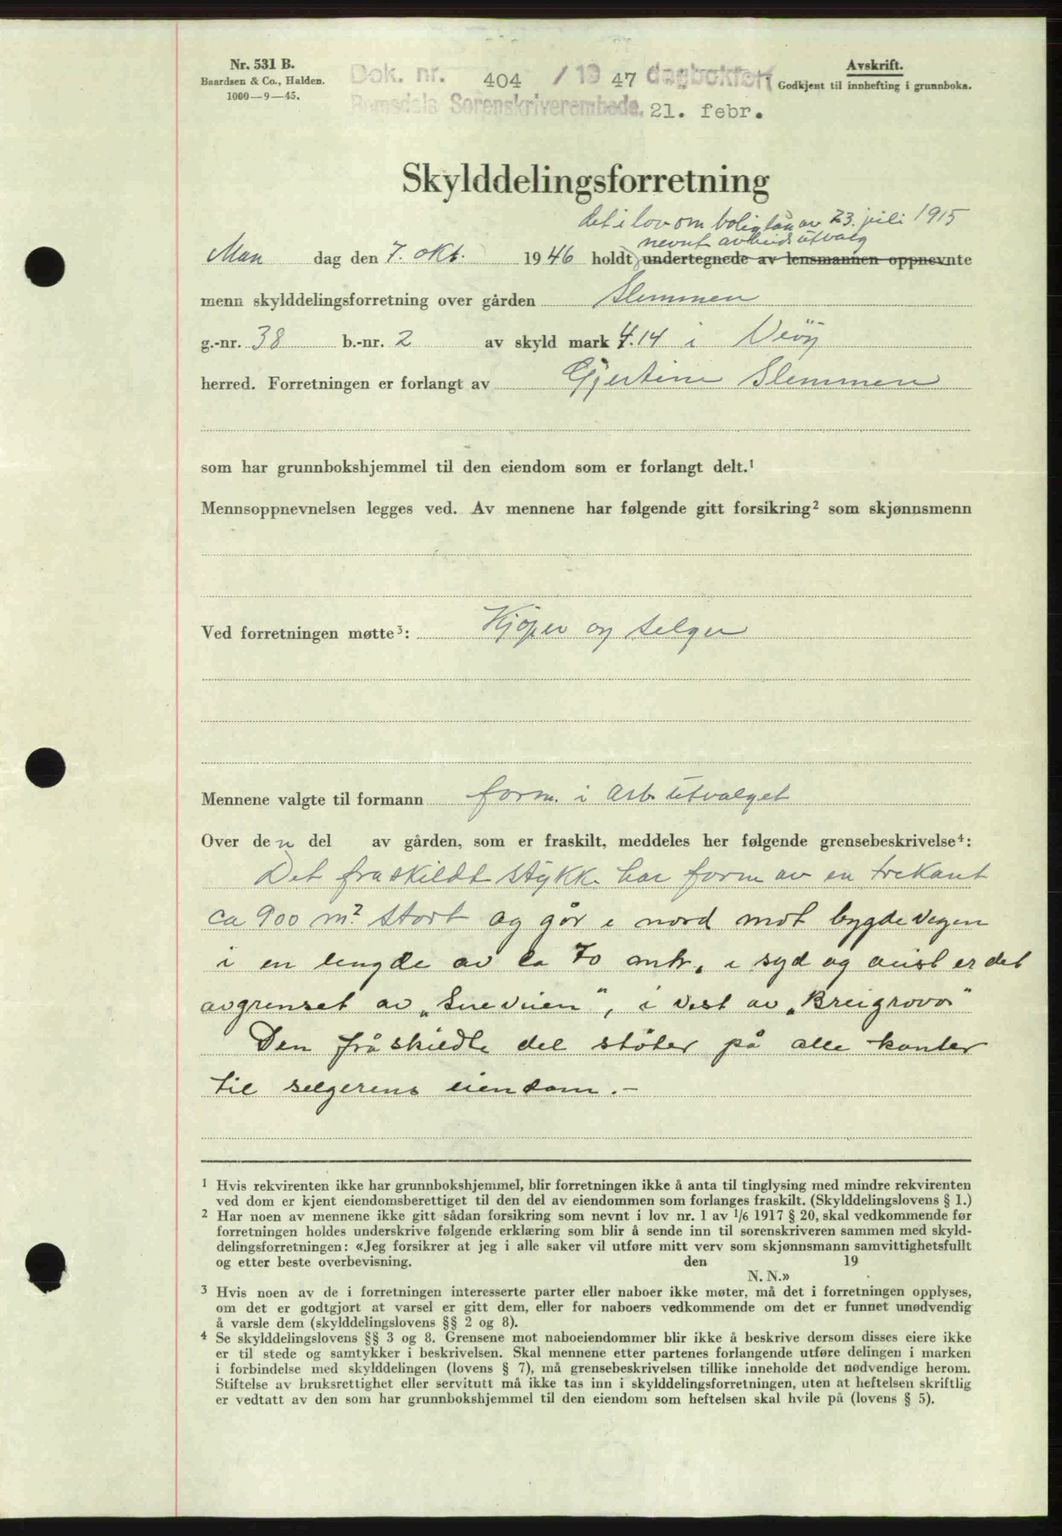 Nr. 531 B.
Baardsen & Co., Halden.
1000—9—45.
Dok. nr. 404 / 19 47 dagbokført
Romsdals Sorenskriverembede. 21. febr.
Avskrift.
Godkjent til innhefting i grunnboka.
Skylddelingsforretning
det i lov om boliglån av 23. juli 1915
nevnt arbeidsutvalg
Man dag den 7. okt. 1946 holdt undertegnede av lensmannen oppnevnte
menn skylddelingsforretning over gården Slemmen
g.-nr. 38 b.-nr. 2 av skyld mark 4.14 i Veøy
herred. Forretningen er forlangt av Gjertine Slemmen
som har grunnbokshjemmel til den eiendom som er forlangt delt.¹
Mennsoppnevnelsen legges ved. Av mennene har følgende gitt forsikring² som skjønnsmenn
Ved forretningen møtte³: Kjøper og selger
Mennene valgte til formann form. i Arb. utvalget
Over den del av gården, som er fraskilt, meddeles her følgende grensebeskrivelse⁴:
Det fraskildt stykke har form av en trekant
ca 900 m² stort og går i nord mot bygdevegen
i en lengde av ca 70 mtr, i syd og aust er det
avgrenset av „ “, i vest av „Breigrova“
Den fråskildte del støter på alle kanter
til selgerens eiendom.-
¹ Hvis rekvirenten ikke har grunnbokshjemmel, blir forretningen ikke å anta til tinglysing med mindre rekvirenten
ved dom er kjent eiendomsberettiget til den del av eiendommen som forlanges fraskilt. (Skylddelingslovens § 1.)
² Har noen av mennene ikke gitt sådan forsikring som nevnt i lov nr. 1 av 1/6 1917 § 20, skal vedkommende før
forretningen holdes underskrive følgende erklæring som blir å sende inn til sorenskriveren sammen med skyld-
delingsforretningen: «Jeg forsikrer at jeg i alle saker vil utføre mitt verv som skjønnsmann samvittighetsfullt
og etter beste overbevisning. den 19
N. N.»
³ Hvis noen av de i forretningen interesserte parter eller naboer ikke møter, må det i forretningen opplyses,
om det er godtgjort at varsel er gitt dem, eller for naboers vedkommende om det er funnet unødvendig
å varsle dem (skylddelingslovens §§ 2 og 8).
⁴ Se skylddelingslovens §§ 3 og 8. Grensene mot naboeiendommer blir ikke å beskrive dersom disses eiere ikke
er til stede og samtykker i beskrivelsen. Skal mennene etter partenes forlangende utføre delingen i marken
i forbindelse med skylddelingen (lovens § 7), må grensebeskrivelsen tillike inneholde det nødvendige herom.
Stiftelse av bruksrettighet eller servitutt må ikke tas inn i skylddelingsforretningen, uten at heftelsen skriftlig
er vedtatt av den som har grunnbokshjemmel til den eiendom som heftelsen skal hvile på (lovens § 5).